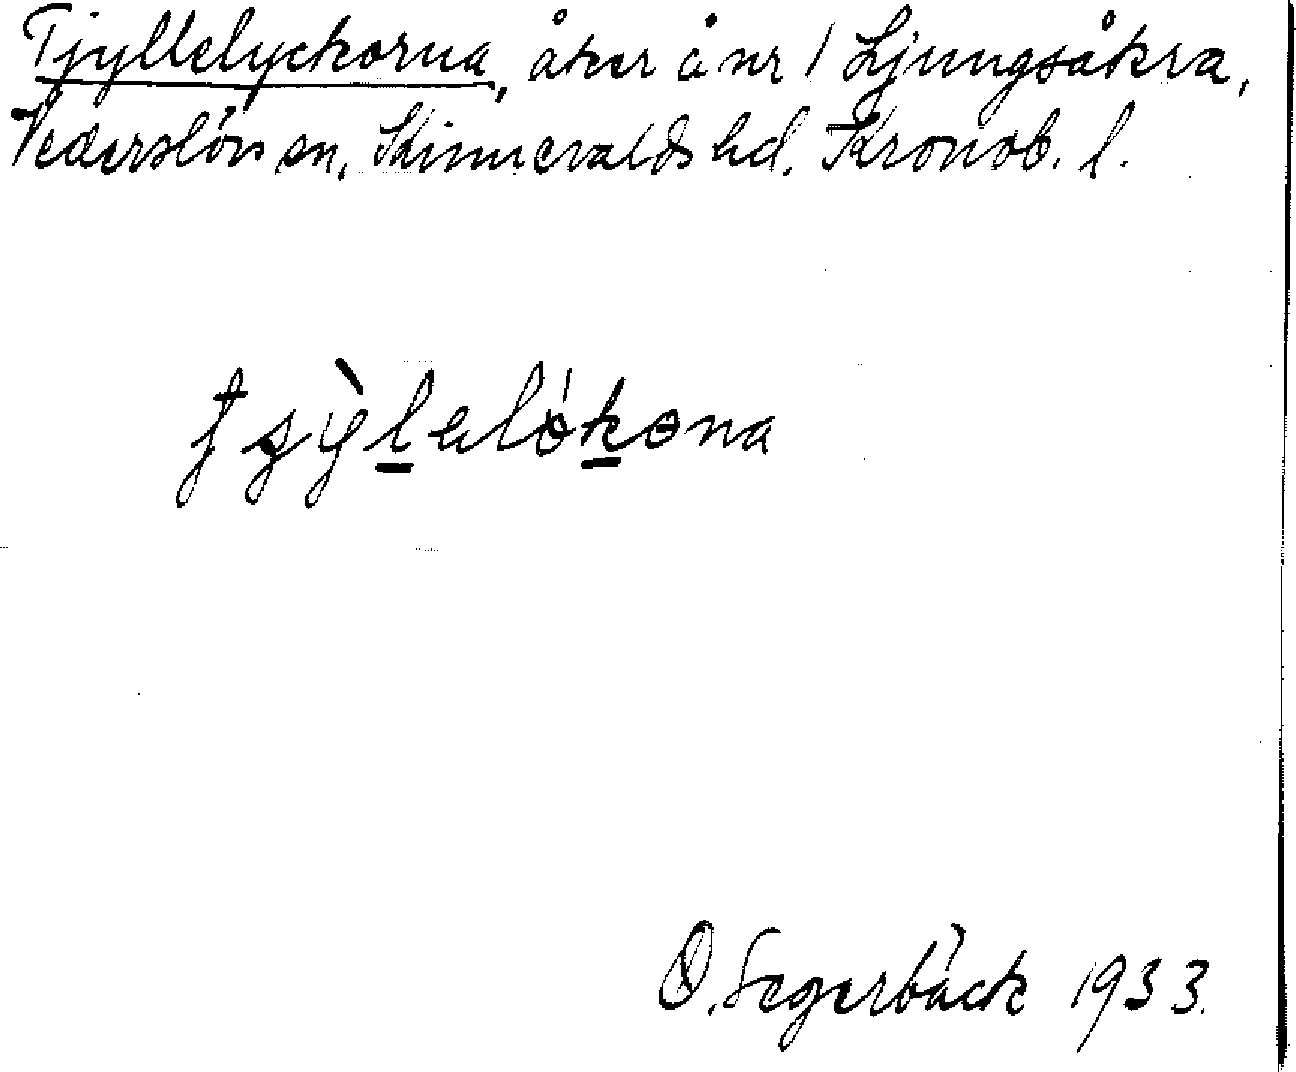 Tjyllelyckorna, åker å nr 1 Ljungsåkra,
Vederslövs sn, Kinnevalds hd. Kronob. l.
O. Segerbäck 1933.